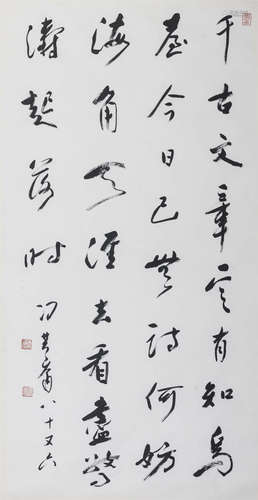 千古文章定有知烏
臺今日已無詩何妨
海角天涯去看盡驚
濤起落時
馮其庸八十又六